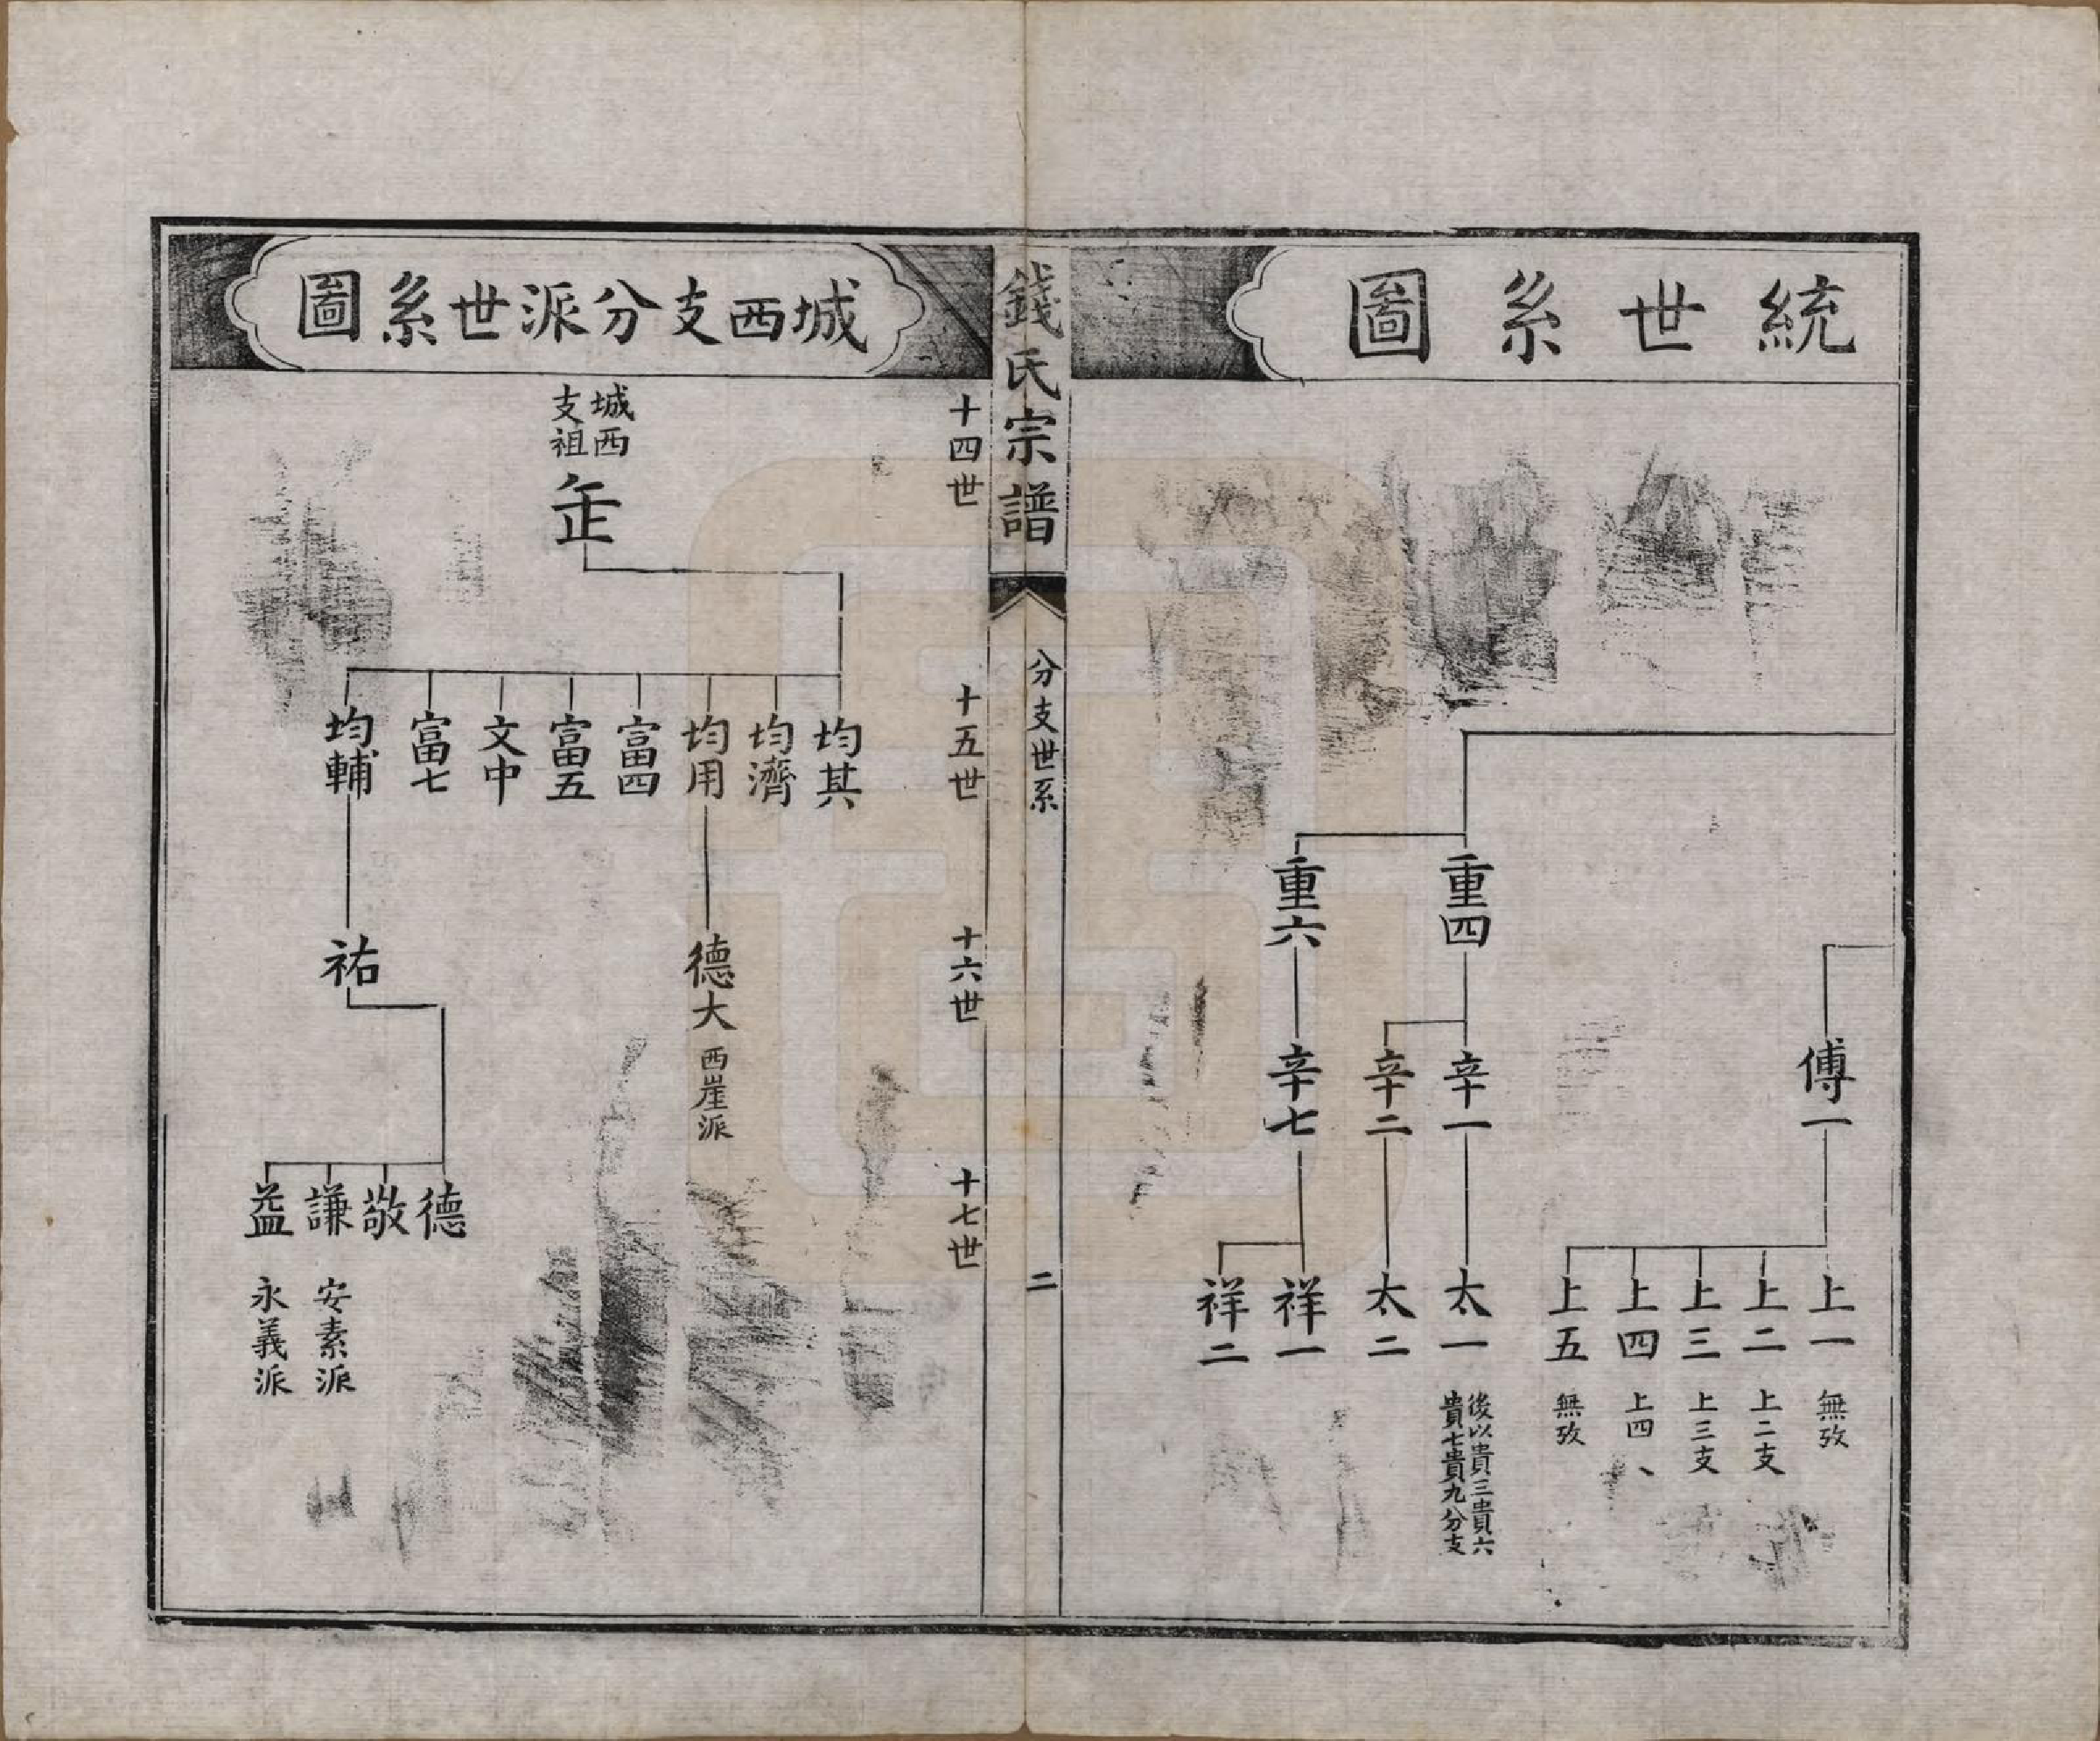 統世系圖
重四
重六
辛一
辛二
辛七
傅一
太一
後以貴三貴六
貴七貴九分支
太二
祥一
祥二
上一
無攷
上二
上二支
上三
上三支
上四
上四
上五
無攷
錢氏宗譜
分支世系
二
城西支分派世系圖
十四世
十五世
十六世
十七世
城西
支祖
均其
均濟
均用
富四
富五
文中
富七
均輔
德大
西崖派
祐
德
敬
謙
安素派
益
永義派